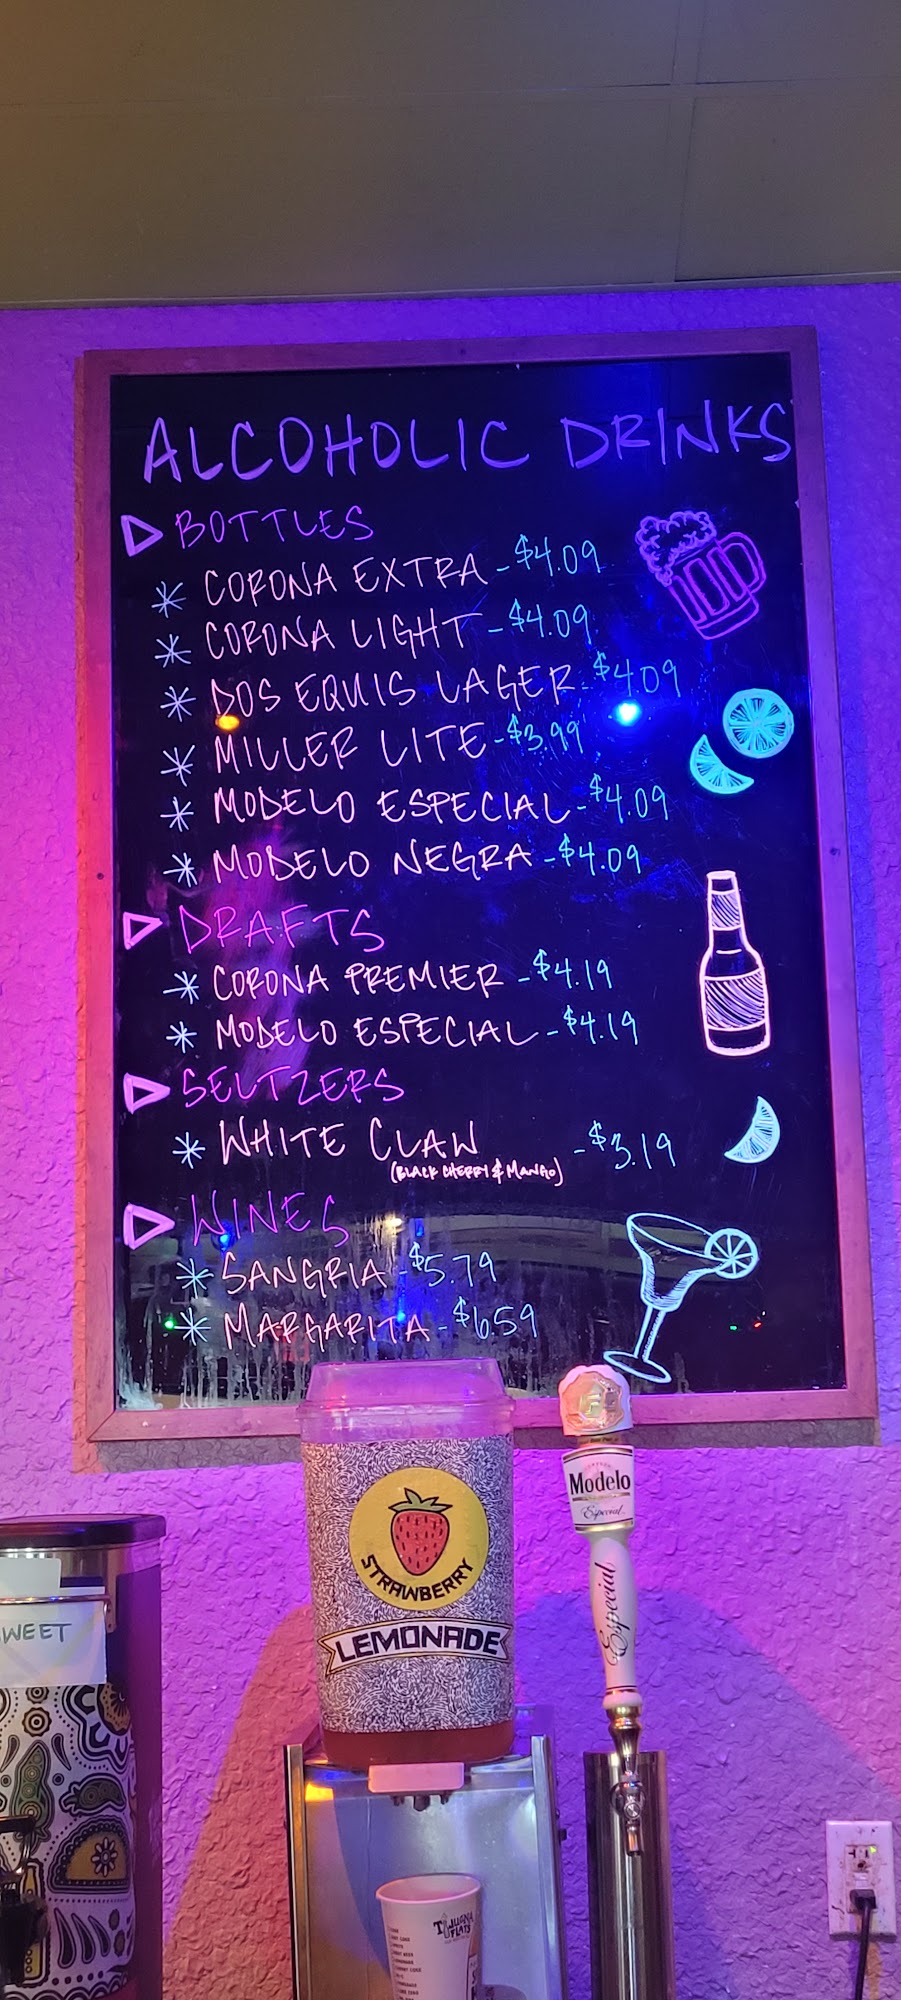 ALCOHOLIC DRINKS
BOTTLES
CORONA EXTRA - $4.09
CORONA LIGHT - $4.09
DOS EQUIS LAGER - $4.09
MILLER LITE - $3.99
MODELO ESPECIAL - $4.09
MODELO NEGRA - $4.09
DRAFTS
CORONA PREMIER - $4.19
MODELO ESPECIAL - $4.19
SELTZERS
WHITE CLAW - $3.19
(BLACK CHERRY & MANGO)
WINES
SANGRIA - $5.79
MARGARITA - $6.59
Modelo
Especial
Especial
STRAWBERRY
LEMONADE
WEET
TIJUANA
FLATS